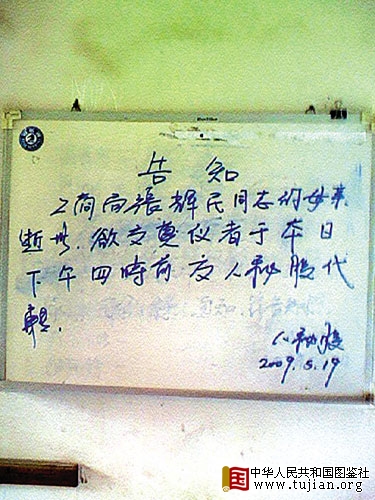 告知
工商向張輝民同志的母亲
逝世.欲交奠仪者于本日
下午四時前交人秘股代
轉.
人秘股
2009.5.19
中华人民共和国图鉴社
www.tujian.org